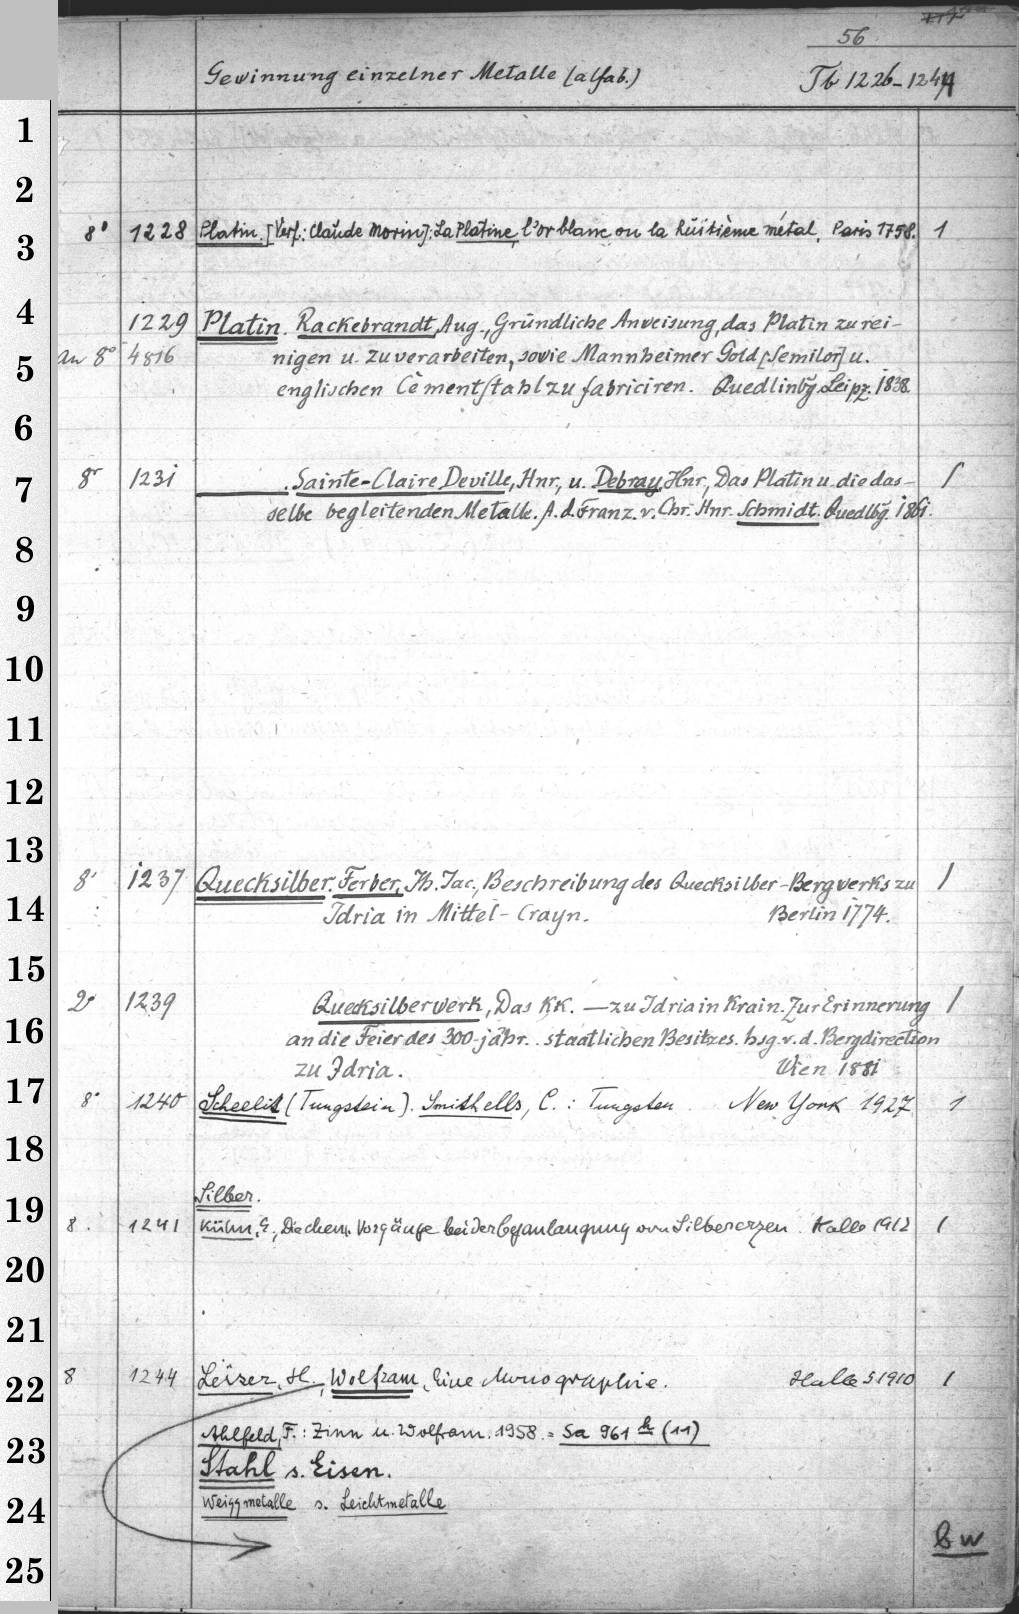 56
Gewinnung einzelner Metalle (alfab.) Tb 1226-1244
1
2
3 8° 1228 Platin. [Verf.: Claude Morin]: La Platine, l'or blanc ou la huitième métal. Paris 1758. 1
4 1229 Platin. Rackebrandt, Aug., Gründliche Anweisung, das Platin zu rei-
5 an 8° 4816 nigen u. zu verarbeiten, sowie Mannheimer Gold [Semilor] u.
englischen Cementstahl zu fabriciren. Quedlinbg. Leipz. 1838.
6
7 8° 1231 ——. Sainte-Claire Deville, Hnr., u. Debray, Hnr., Das Platin u. die das- 1
selbe begleitenden Metalle. A. d. Franz. v. Chr. Hnr. Schmidt. Quedlbg. 1861.
8
9
10
11
12
13
8° 1237 Quecksilber. Ferber, Jh. Jac., Beschreibung des Quecksilber-Bergwerks zu 1
14 Idria in Mittel-Crayn. Berlin 1774.
15
2° 1239 Quecksilberwerk, Das KK. — zu Idria in Krain. Zur Erinnerung 1
16 an die Feier des 300-jähr. staatlichen Besitzes. hsg. v. d. Bergdirection
zu Idria. Wien 1881
17 8° 1240 Scheelit (Tungstein). Smithells, C.: Tungsten New York 1927 1
18
19 Silber.
8. 1241 Kühn, E., Die chem. Vorgänge bei der Cyanlaugung von Silbererzen. Halle 1912 1
20
21
22 8 1244 Leiser, H., Wolfram, Eine Monographie. Halle S 1910 1
23 Ahlfeld, F.: Zinn u. Wolfram. 1958. = Sa 961 k (11)
Stahl s. Eisen.
24 Weissmetalle s. Leichtmetalle
bw
25